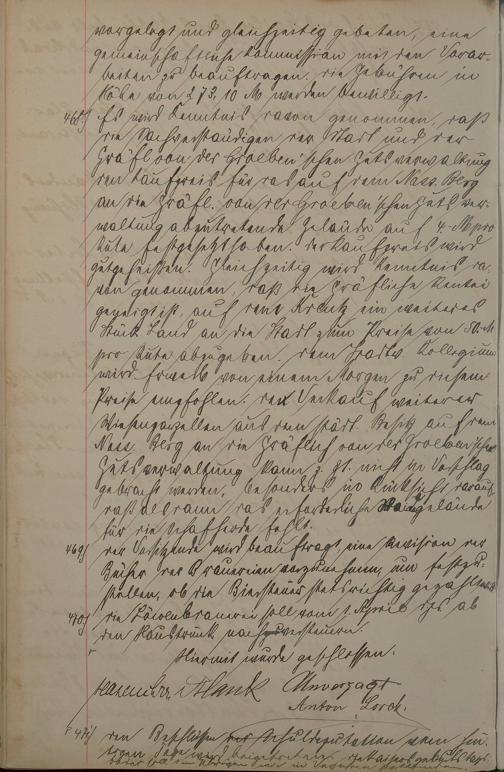 vorgelegt und gleichzeitig gebeten, eine
gemeinschaftliche Kommission mit den Vorar-
beiten zu beauftragen. die Gebühren in
Höhe von 273,10 M werden bewilligt.
468) Es wird Kenntnis davon genommen, daß
die Sachverständigen der Stadt und der
Gräfl. von der Groeben'schen Gutsverwaltung
den Kaufpreis für das auf dem Nass. Berg
an die Gräfl. von der Groeben'schen Gutsver-
waltung abzutretende Gelände auf 4. M pro
Rute festgesetzt haben. der Kaufpreis wird
gutgeheissen. Gleichzeitig wird Kenntnis da-
von genommen, daß die Gräfliche Rentei
geneigt ist, auf dem Kreutz ein weiteres
Stück Land an die Stadt zum Preise von 50. M
pro Rute abzugeben. dem Kollegium
wird Erwerb von einem Morgen zu diesem
Preise empfohlen. der Verkauf weiterer
Wiesenparzellen aus dem städt. Besitz auf dem
Nass. Berg an die Gräflich von der Groeben'sche
Gutsverwaltung kann z. Zt. nicht in Vorschlag
gebracht werden, besonders in Hinsicht darauf
daß alsdann das erforderliche gelände
für die Schafherde fehlt.
469) der Vorsitzende wird beauftragt, eine Revision der
Bücher der Brauereien vorzunehmen, um festzu-
stellen, ob die Biersteuer stets richtig gezahlt wird
470) die Löwenbrauerei soll vom 1 April ab
den Haustrunk nachversteuern.
Hiermit wurde geschlossen.
Plank Unverzagt
Anton Lerch.
471) den Beschlüssen der Schuldeputation vom